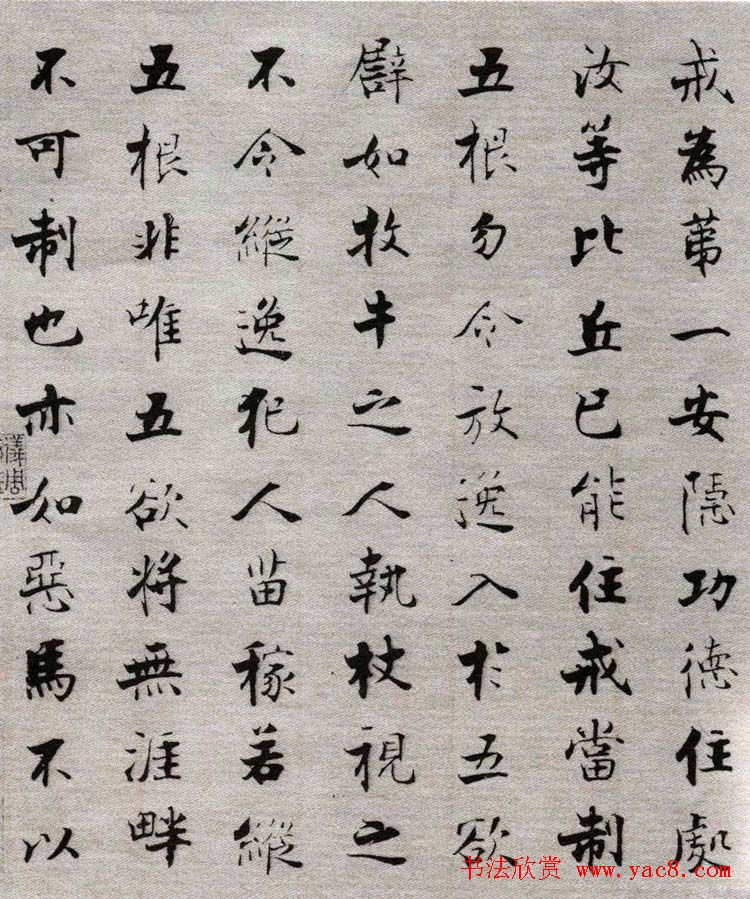 戒為苐一安隱功德住處
汝等比丘已能住戒當制
五根勿令放逸入於五欲
譬如牧牛之人執杖視之
不令縱逸犯人苗稼若縱
五根非唯五欲將無涯畔
不可制也亦如惡馬不以
书法欣赏 www.yac8.com